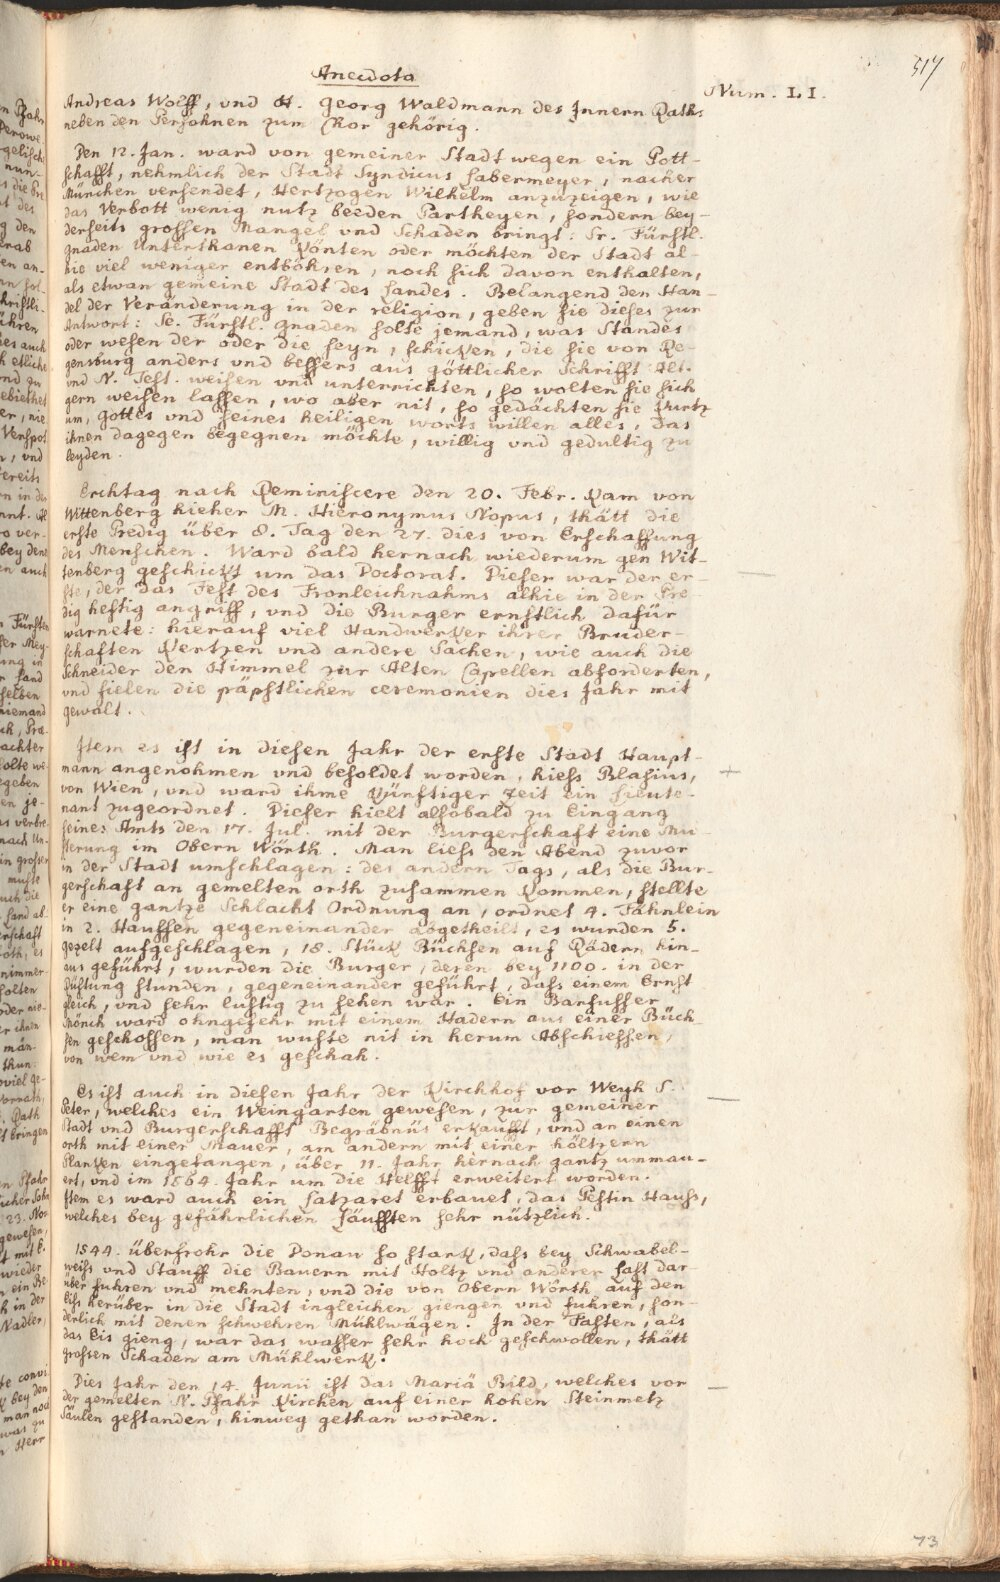 517
Anecdota
Num. LI.
Andreas Wolff, vnd H. Georg Waldmann des Innern Raths
neben den Persohnen zum Chor gehörig.
Den 12. Jan. ward von gemeiner Stadt wegen ein Pott-
schafft, nehmlich der Stadt Syndicus Habermeyer, nacher
München versendet, Hertzogen Wilhelm anzuzeigen, wie
das Verbott wenig nutz beeden Partheyen, sondern bey-
derseits grossen Mangel vnd Schaden bringt: Sr. Fürstl.
gnaden Unterthanen könten oder möchten der Stadt al-
hie viel weniger entböhren, noch sich davon enthalten,
als etwan gemeine Stadt des Landes. Belangend den Han-
del der Veränderung in der religion, geben sie dieses zur
Antwort: Se. Fürstl. gnaden solte jemand, was Standes
oder wesen der oder die seyn, schicken, die sie von Re-
gensburg anders vnd bessers aus göttlicher Schrifft Alt.
vnd N. Test. weisen vnd unterrichten, so wolten sie sich
gern weisen lassen, wo aber nit, so gedächten sie kurtz
um, Gottes vnd seines heiligen worts willen alles, das
ihnen dagegen begegnen möchte, willig vnd gedultig zu
leyden.
Erchtag nach Reminiscere den 20. Febr. kam von
Wittenberg hieher M. Hieronymus Nopus, thätt die
erste Predig über 8. Tag den 27. dies von Erschaffung
des Menschen. Ward bald hernach wiederum gen Wit-
tenberg geschickt um das Doctorat. Dieser war der er-
ste, der das Fest des Fronleichnahms alhie in der Pre-
dig hefftig angriff, vnd die Burger ernstlich dafür
warnete: hierauf viel Handwerker ihrer Bruder-
schaften Kertzen vnd andere Sachen, wie auch die
Schneider den Himmel zur Alten Capellen abforderten,
vnd fielen die päpstlichen ceremonien dies Jahr mit
gewalt.
Item es ist in diesen Jahr der erste Stadt Haupt-
mann angenohmen vnd besoldet worden, hiess Blasius,
von Wien, vnd ward ihme künftiger Zeit ein Lieute-
nant zugeordnet. Dieser hielt alsobald zu Eingang
seines Amts den 17. Jul. mit der Burgerschaft eine Mu-
sterung im Obern Wörth. Man liess den Abend zuvor
in der Stadt umschlagen: des andern Tags, als die Bur-
gerschaft an gemelten orth zusammen kommen, stellte
er eine gantze Schlacht Ordnung an, ordnet 4. Fähnlein
in 2. Hauffen gegeneinander abgetheilt, es wurden 5.
gezelt aufgeschlagen, 18. Stück Büchsen auf Rädern hin-
aus geführt, wurden die Burger, deren bey 1100. in der
Rüstung stunden, gegeneinander geführt, dass einem Ernst
gleich, vnd sehr lustig zu sehen war. Ein Barfusser
Mönch ward ohngefehr mit einem Hadern aus einer Büch-
sen geschossen, man wuste nit in herum Abschiessen,
von wem vnd wie es geschah.
Es ist auch in diesen Jahr der Kirchhof vor Weyh S.
Peter, welches ein Weingarten gewesen, zur gemeiner
Stadt vnd Burgerschafft Begräbnüs erkaufft, vnd an einen
orth mit einer Mauer, am andern mit einer höltzern
Planken eingefangen, über 11. Jahr hernach gantz ummau-
ert, vnd im 1564. Jahr um die Helfft erweitert worden.
Item es ward auch ein Latzaret erbauet, das Pestin Hauss,
welches bey gefährlichen Läufften sehr nützlich.
1544. überfrohr die Donau so stark, dass bey Schwabel-
weiss vnd Stauff die Bauern mit Holtz vnd anderer Last dar-
über fuhren vnd mehnten, vnd die von Obern Wörth auf den
Eiss herüber in die Stadt ingleichen giengen vnd fuhren, son-
derlich mit denen schwehren Mühlwägen. In der Fasten, als
das Eis gieng, war das wasser sehr hoch geschwollen, thätt
grossen Schaden am Mühlwerk.
Dies Jahr den 14. Junii ist das Mariä Bild, welches vor
der gemelten N. Pfahr Kirchen auf einer hohen Steinmetz
Säulen gestanden, hinweg gethan worden.
73